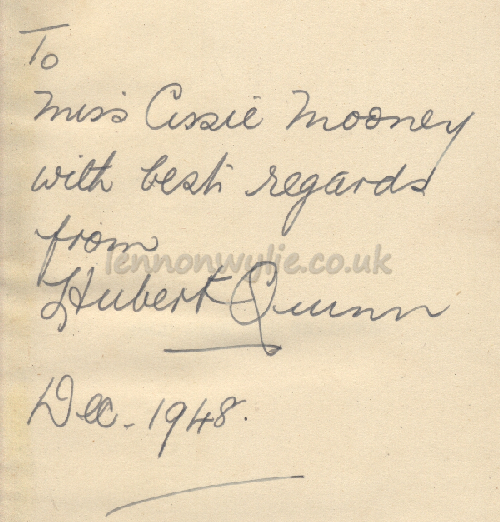 To
Miss Cissie Mooney
with best regards
from
lennonwylie.co.uk
Hubert Quinn
Dec. 1948.